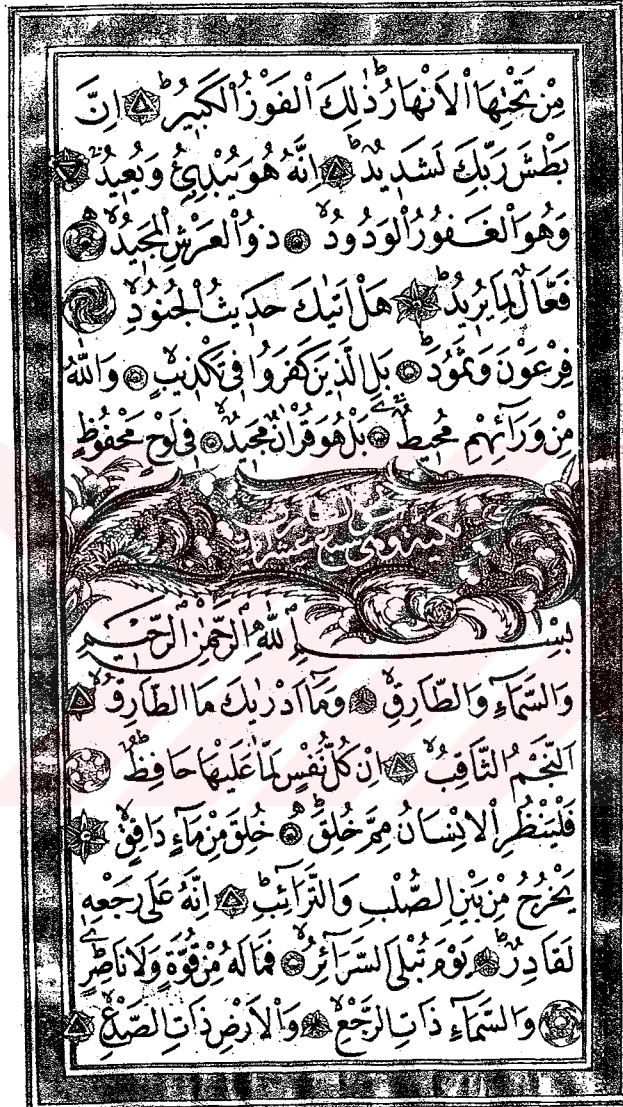 مِنْ تَحْتِهَا الْاَنْهَارُ ذٰلِكَ الْفَوْزُ الْكَبِيرُ اِنَّ
بَطْشَ رَبِّكَ لَشَدِيدٌ اِنَّهُ هُوَ يُبْدِئُ وَيُعِيدُ
وَهُوَ الْغَفُورُ الْوَدُودُ ذُو الْعَرْشِ الْمَجِيدُ
فَعَّالٌ لِمَا يُرِيدُ هَلْ اَتٰيكَ حَدِيثُ الْجُنُودِ
فِرْعَوْنَ وَثَمُودَ بَلِ الَّذِينَ كَفَرُوا فِي تَكْذِيبٍ وَاللّٰهُ
مِنْ وَرَآئِهِمْ مُحِيطٌ بَلْ هُوَ قُرْاٰنٌ مَجِيدٌ فِي لَوْحٍ مَحْفُوظٍ
سورة الطارق
مكية وهي سبع عشر آيات
بِسْمِ اللّٰهِ الرَّحْمٰنِ الرَّحِيمِ
وَالسَّمَآءِ وَالطَّارِقِ وَمَآ اَدْرٰيكَ مَا الطَّارِقُ
اَلنَّجْمُ الثَّاقِبُ اِنْ كُلُّ نَفْسٍ لَمَّا عَلَيْهَا حَافِظٌ
فَلْيَنْظُرِ الْاِنْسَانُ مِمَّ خُلِقَ خُلِقَ مِنْ مَآءٍ دَافِقٍ
يَخْرُجُ مِنْ بَيْنِ الصُّلْبِ وَالتَّرَآئِبِ اِنَّهُ عَلٰى رَجْعِهِ
لَقَادِرٌ يَوْمَ تُبْلَى السَّرَآئِرُ فَمَا لَهُ مِنْ قُوَّةٍ وَلَا نَاصِرٍ
وَالسَّمَآءِ ذَاتِ الرَّجْعِ وَالْاَرْضِ ذَاتِ الصَّدْعِ